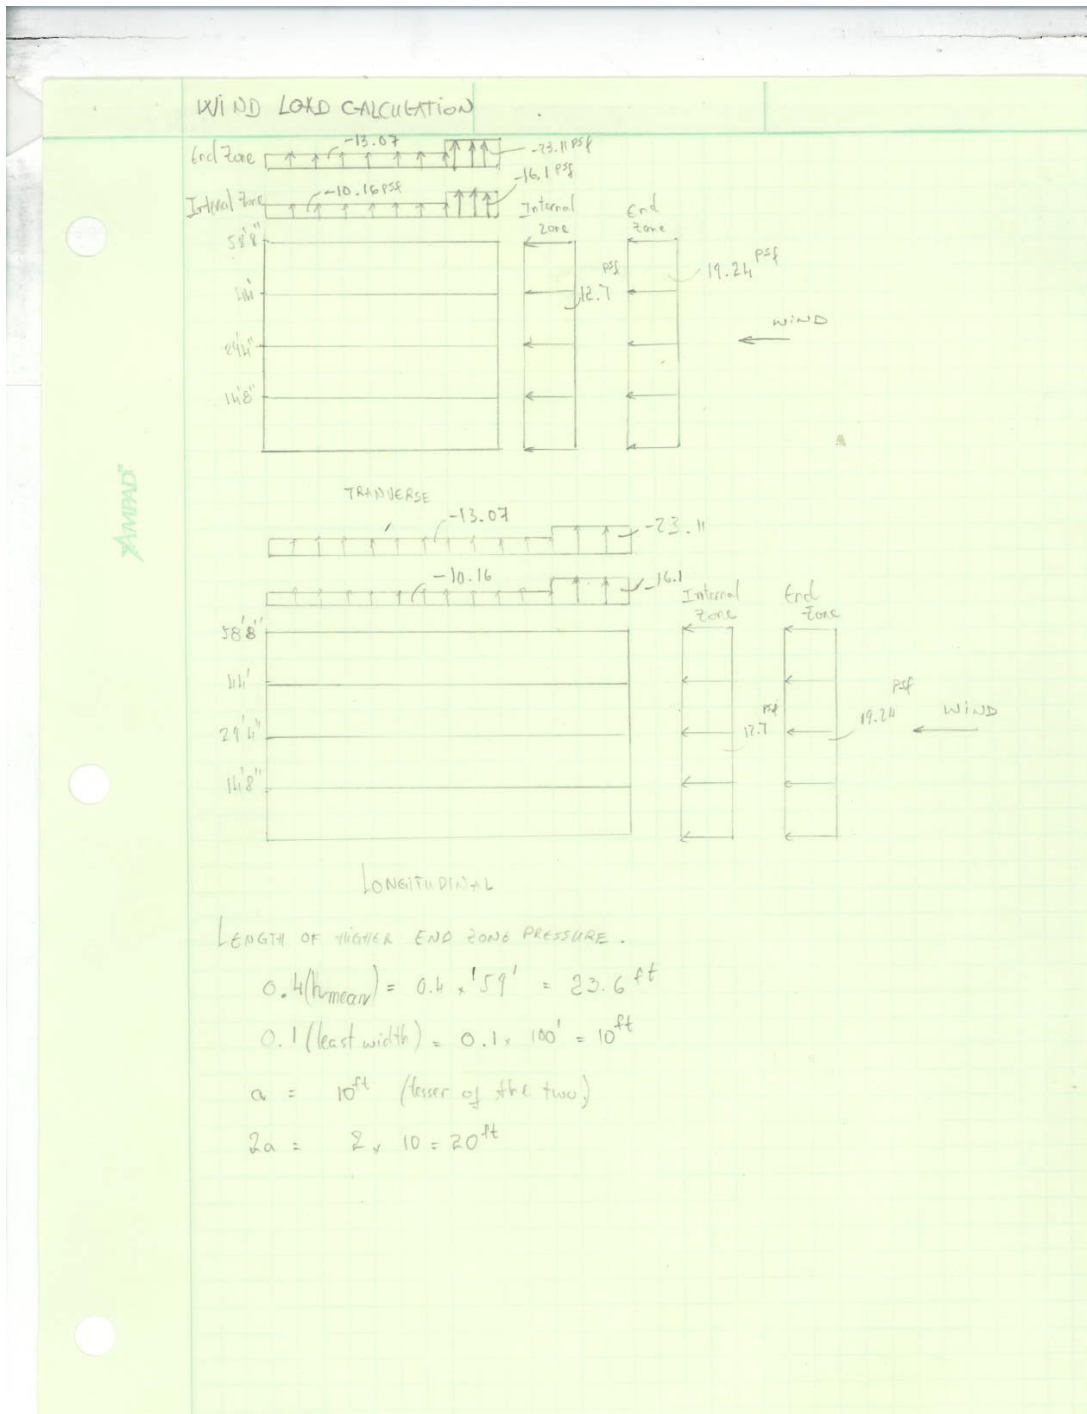 WIND LOAD CALCULATION
End Zone -13.07 -23.11 psf
Interval Zone -10.16 psf -16.1 psf
Internal zone
End Zone
58'8"
44'
29'4"
14'8"
12.7 psf
19.24 psf
WIND
AMPAD
TRANVERSE
-13.07 -23.11
-10.16 -16.1
Internal zone
End Zone
58'8"
44'
29'4"
14'8"
12.7 psf
19.24 psf
WIND
LONGITUDINAL
LENGTH OF HIGHER END ZONE PRESSURE.
0.4(hmean) = 0.4 x '59' = 23.6 ft
0.1 (least width) = 0.1 x 100' = 10 ft
a = 10 ft (lesser of the two)
2a = 2 x 10 = 20 ft